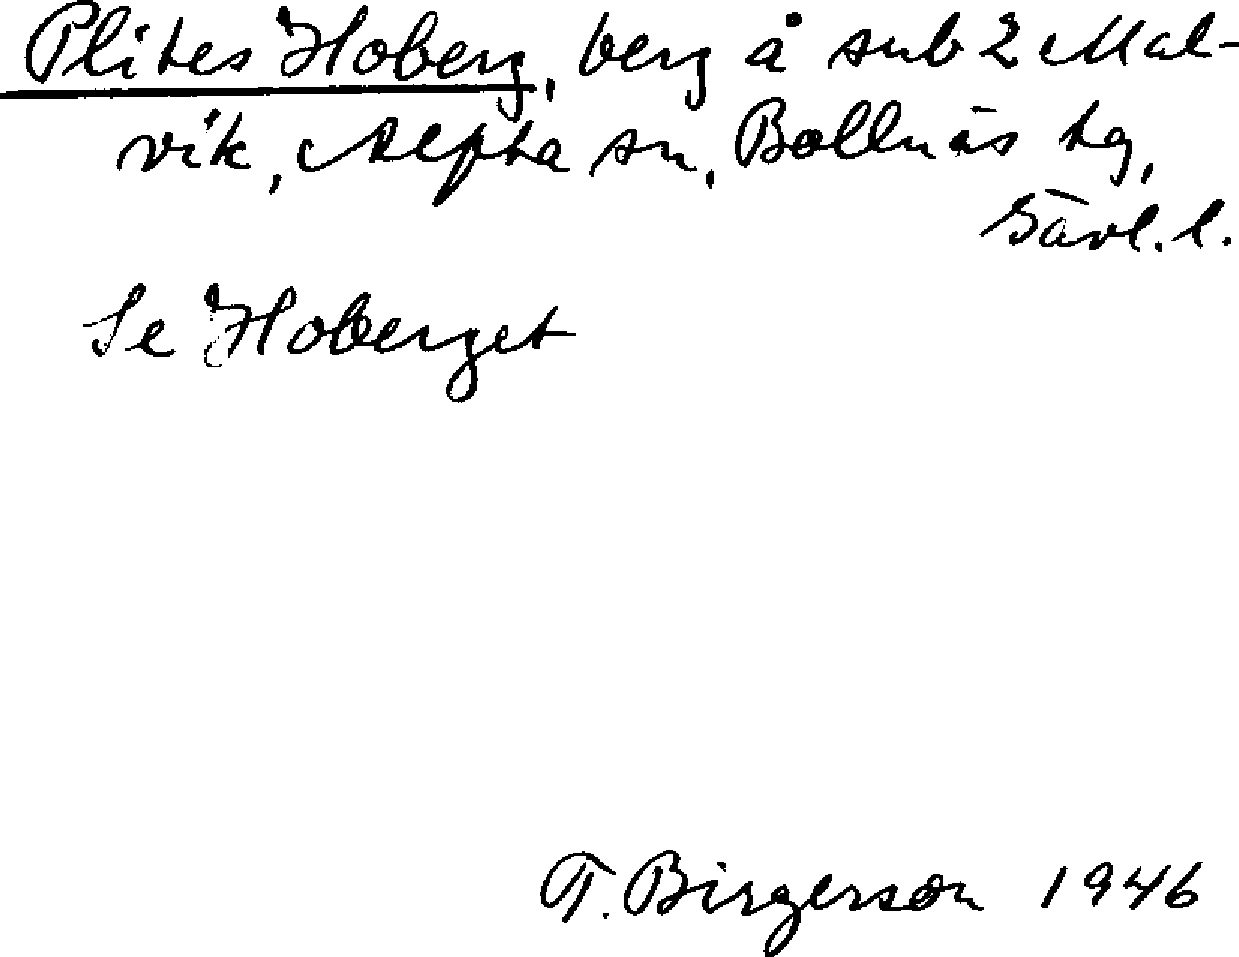 Plites Hoberg, berg å sub 2 Mal-
vik, Alfta sn, Bollnäs tg,
Gävl. l.
Se Hoberget
T. Birgerson 1946